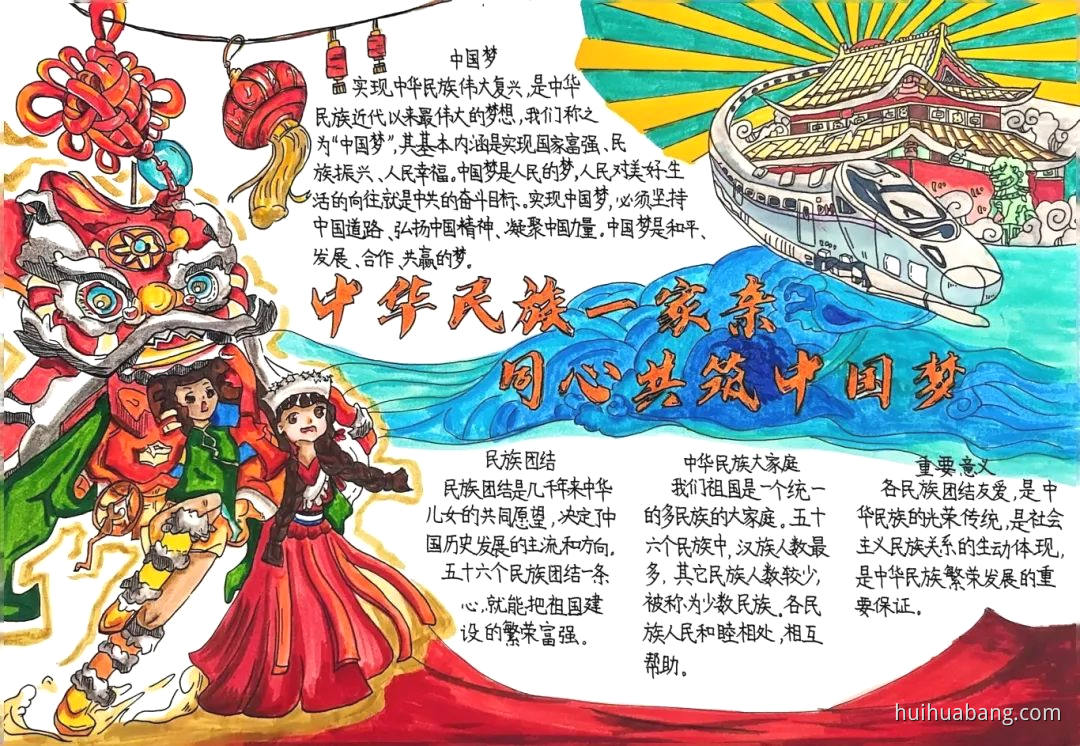 中国梦
实现中华民族伟大复兴,是中华
民族近代以来最伟大的梦想,我们称之
为“中国梦”,其基本内涵是实现国家富强、民
族振兴、人民幸福。中国梦是人民的梦,人民对美好生
活的向往就是中共的奋斗目标、实现中国梦,必须坚持
中国道路、弘扬中国精神、凝聚中国力量。中国梦是和平、
发展、合作、共赢的梦。
中华民族一家亲
同心共筑中国梦
民族团结
民族团结是几千年来中华
儿女的共同愿望,决定了中
国历史发展的主流和方向。
五十六个民族团结一条
心,就能把祖国建
设的繁荣富强。
中华民族大家庭
我们祖国是一个统一
的多民族的大家庭。五十
六个民族中,汉族人数最
多,其它民族人数较少,
被称为少数民族。各民
族人民和睦相处,相互
帮助。
重要意义
各民族团结友爱,是中
华民族的光荣传统,是社会
主义民族关系的生动体现,
是中华民族繁荣发展的重
要保证。
huihuabang.com